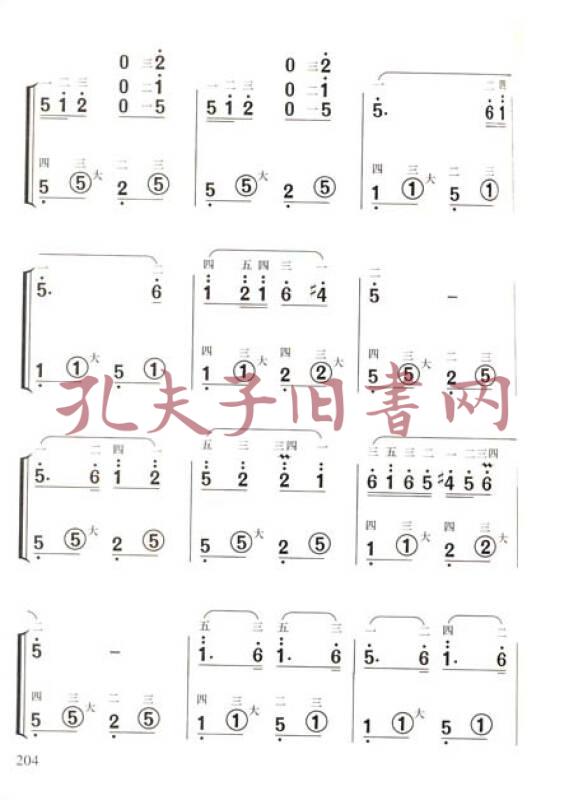 0 三 2 0 三 2
一 二 三 0 二 1 一 二 三 0 二 1 一 二 四
5 1 2 0 一 5 5 1 2 0 一 5 5. 6 1
四 三 大 二 三 四 三 大 二 三
5 ⑤ 2 ⑤ 5 ⑤ 大 2 ⑤ 1 ① 5 ①
一 二 四 五 四 三 一 二
5. 6 1 2 1 6 #4 5 –
大 四 三 大 四 三 大 四 三 大 二 三
1 ① 5 ① 1 ① 2 ② 5 ⑤ 2 ⑤
孔夫子旧书网
一 二 四 一 五 三 三 四 一 三 五 三 二 一 二 三 四
5. 6 1 2 5 2 2 1 6 1 6 5 #4 5 6
大 大 四 三 大 四 三 大
5 ⑤ 2 ⑤ 5 ⑤ 2 ⑤ 1 ① 2 ②
二 五 三 五 三 一 二 四 二
5 – 1. 6 1. 6 5. 6 1. 6
四 三 大 二 三 四 三 大 二 三 大
5 ⑤ 2 ⑤ 1 ① 5 ① 1 ① 5 ①
204